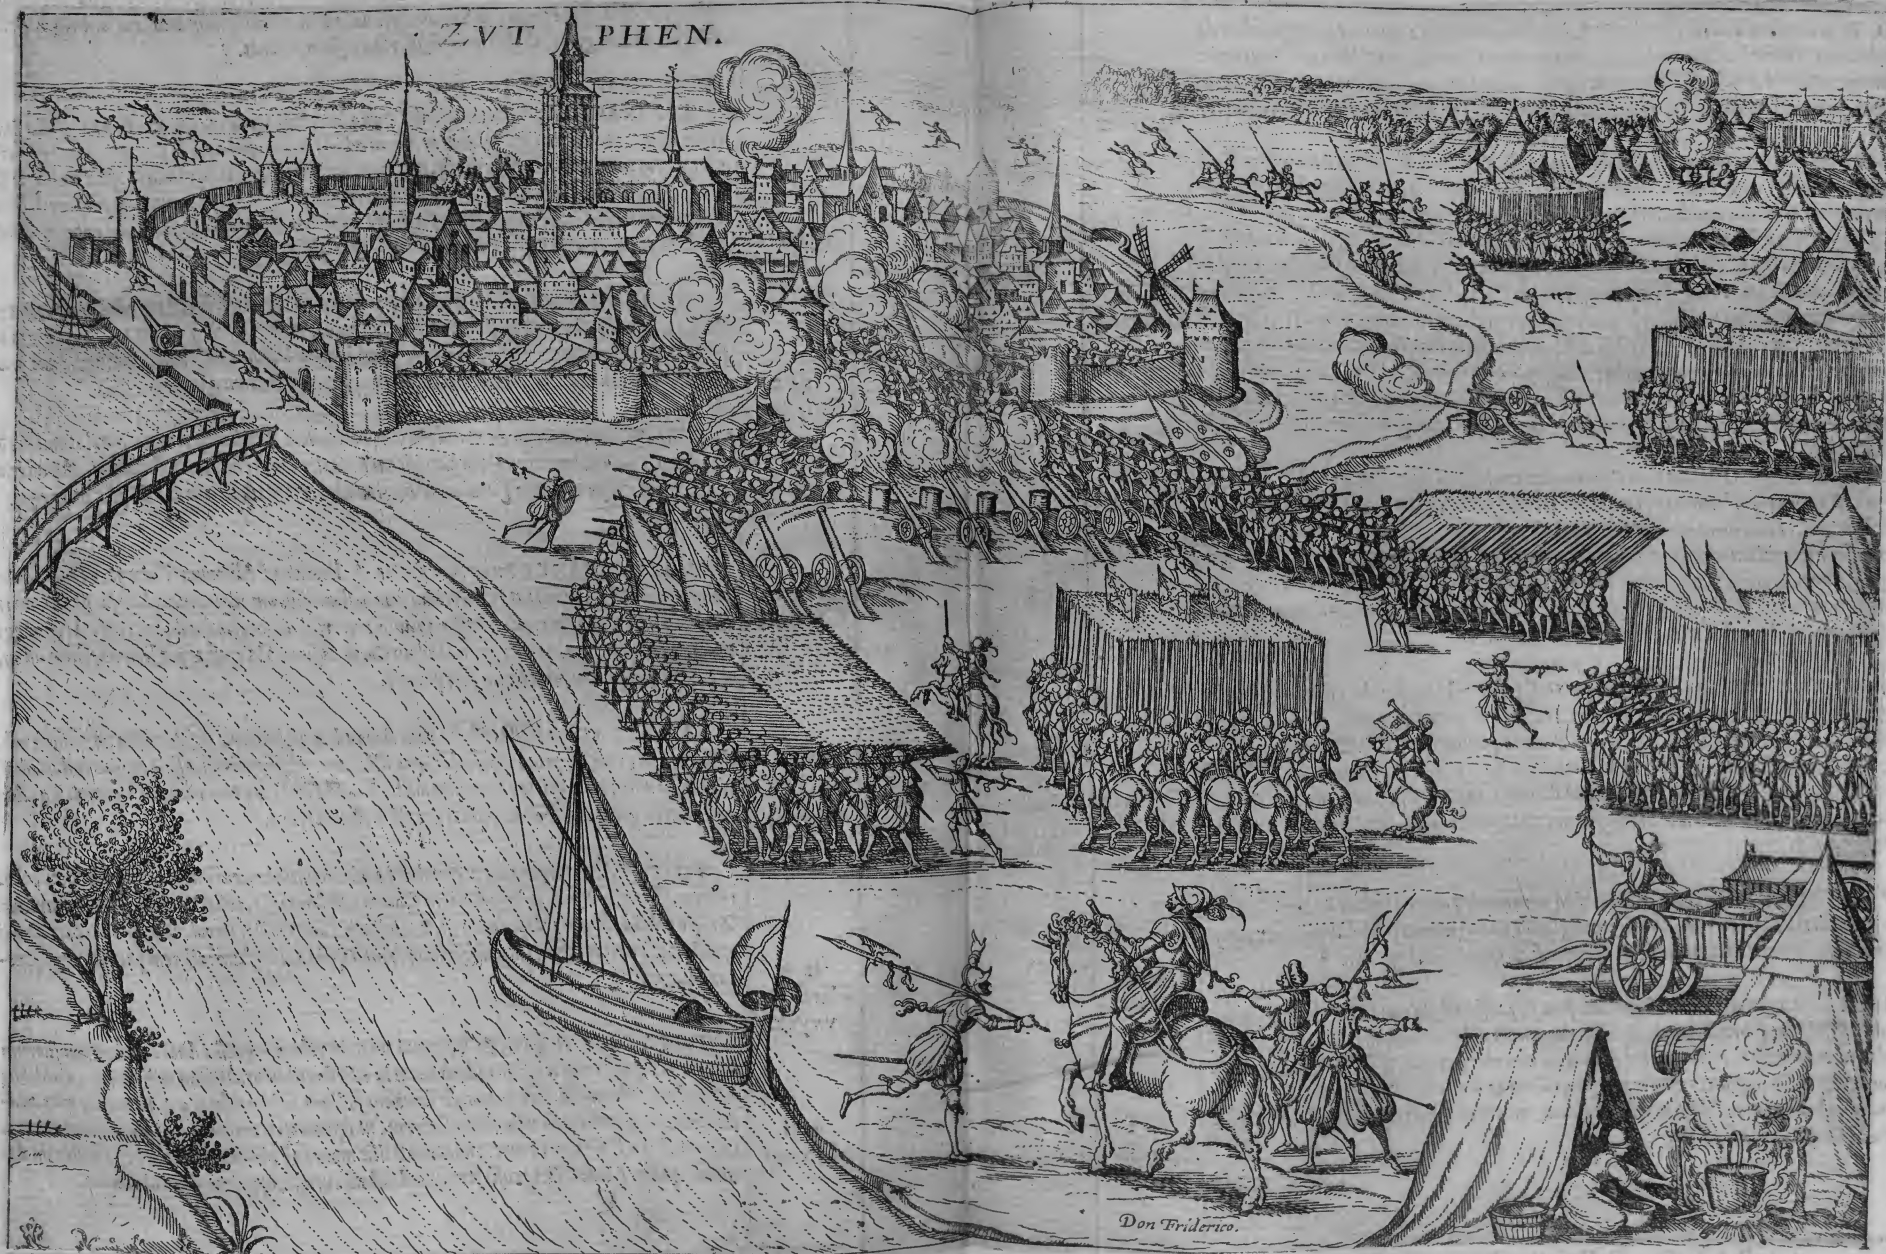 ZVTPHEN.
Don Friderico.